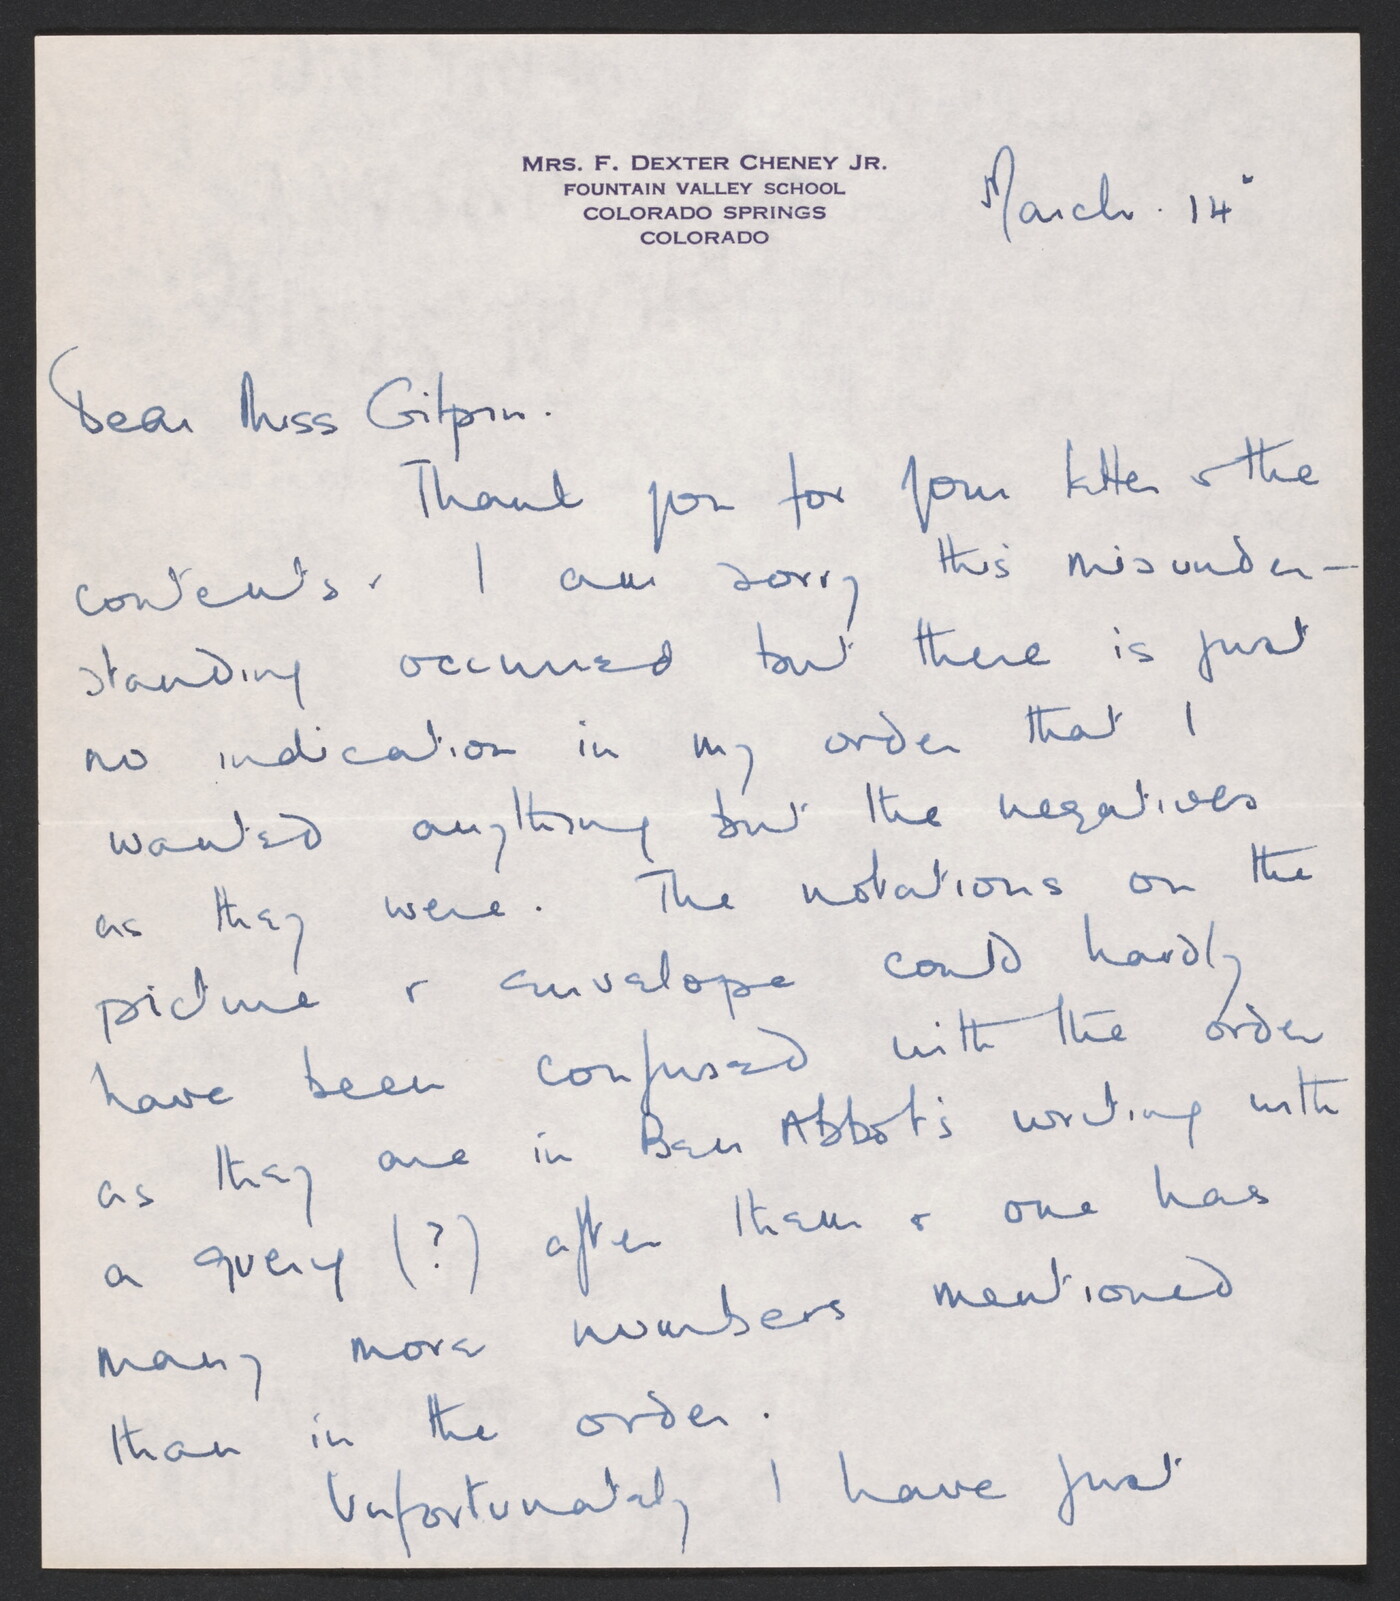 MRS. F. DEXTER CHENEY JR.
FOUNTAIN VALLEY SCHOOL
COLORADO SPRINGS
COLORADO
March. 14
Dear Miss Gilpin.
Thank you for your letter & the
contents. I am sorry this misunder-
standing occurred but there is just
no indication in my order that I
wanted anything but the negatives
as they were. The notations on the
picture & envelope could hardly
have been confused with the order
as they are in Ben Abbot's writing with
a query (?) after them & one has
many more numbers mentioned
than in the order.
Unfortunately I have just